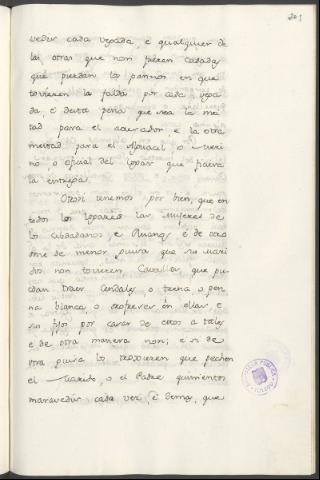 201
vedís cada vegada, e qualquier de
las otras que non fueren casadas
que puedan los pannos en que
toviere la falda por cada vega
da, e desta pena que sea la mi
tad para el acusador e la otra
meitad para el Alguacil o Meri
no, o oficial del logar que ficiera
la entrega
Otrosí tenemos por bien, que en
todos los logares las Mugeres de
los cibdadanos, e Ruanos e de otro
ome de menor guisa que sus mari
dos non tovieren Cavallos que pu
edan traer cendales, o trena o pen
na blanca, o
sus fijos por casar de estos a tales
e de otra manera non; e si de
otra guisa los troxieren que pechen
el Marido, o el Padre quinientos
maravedís cada vez, e demas, que
BIBLIOTECA PUBLICA
TOLEDO